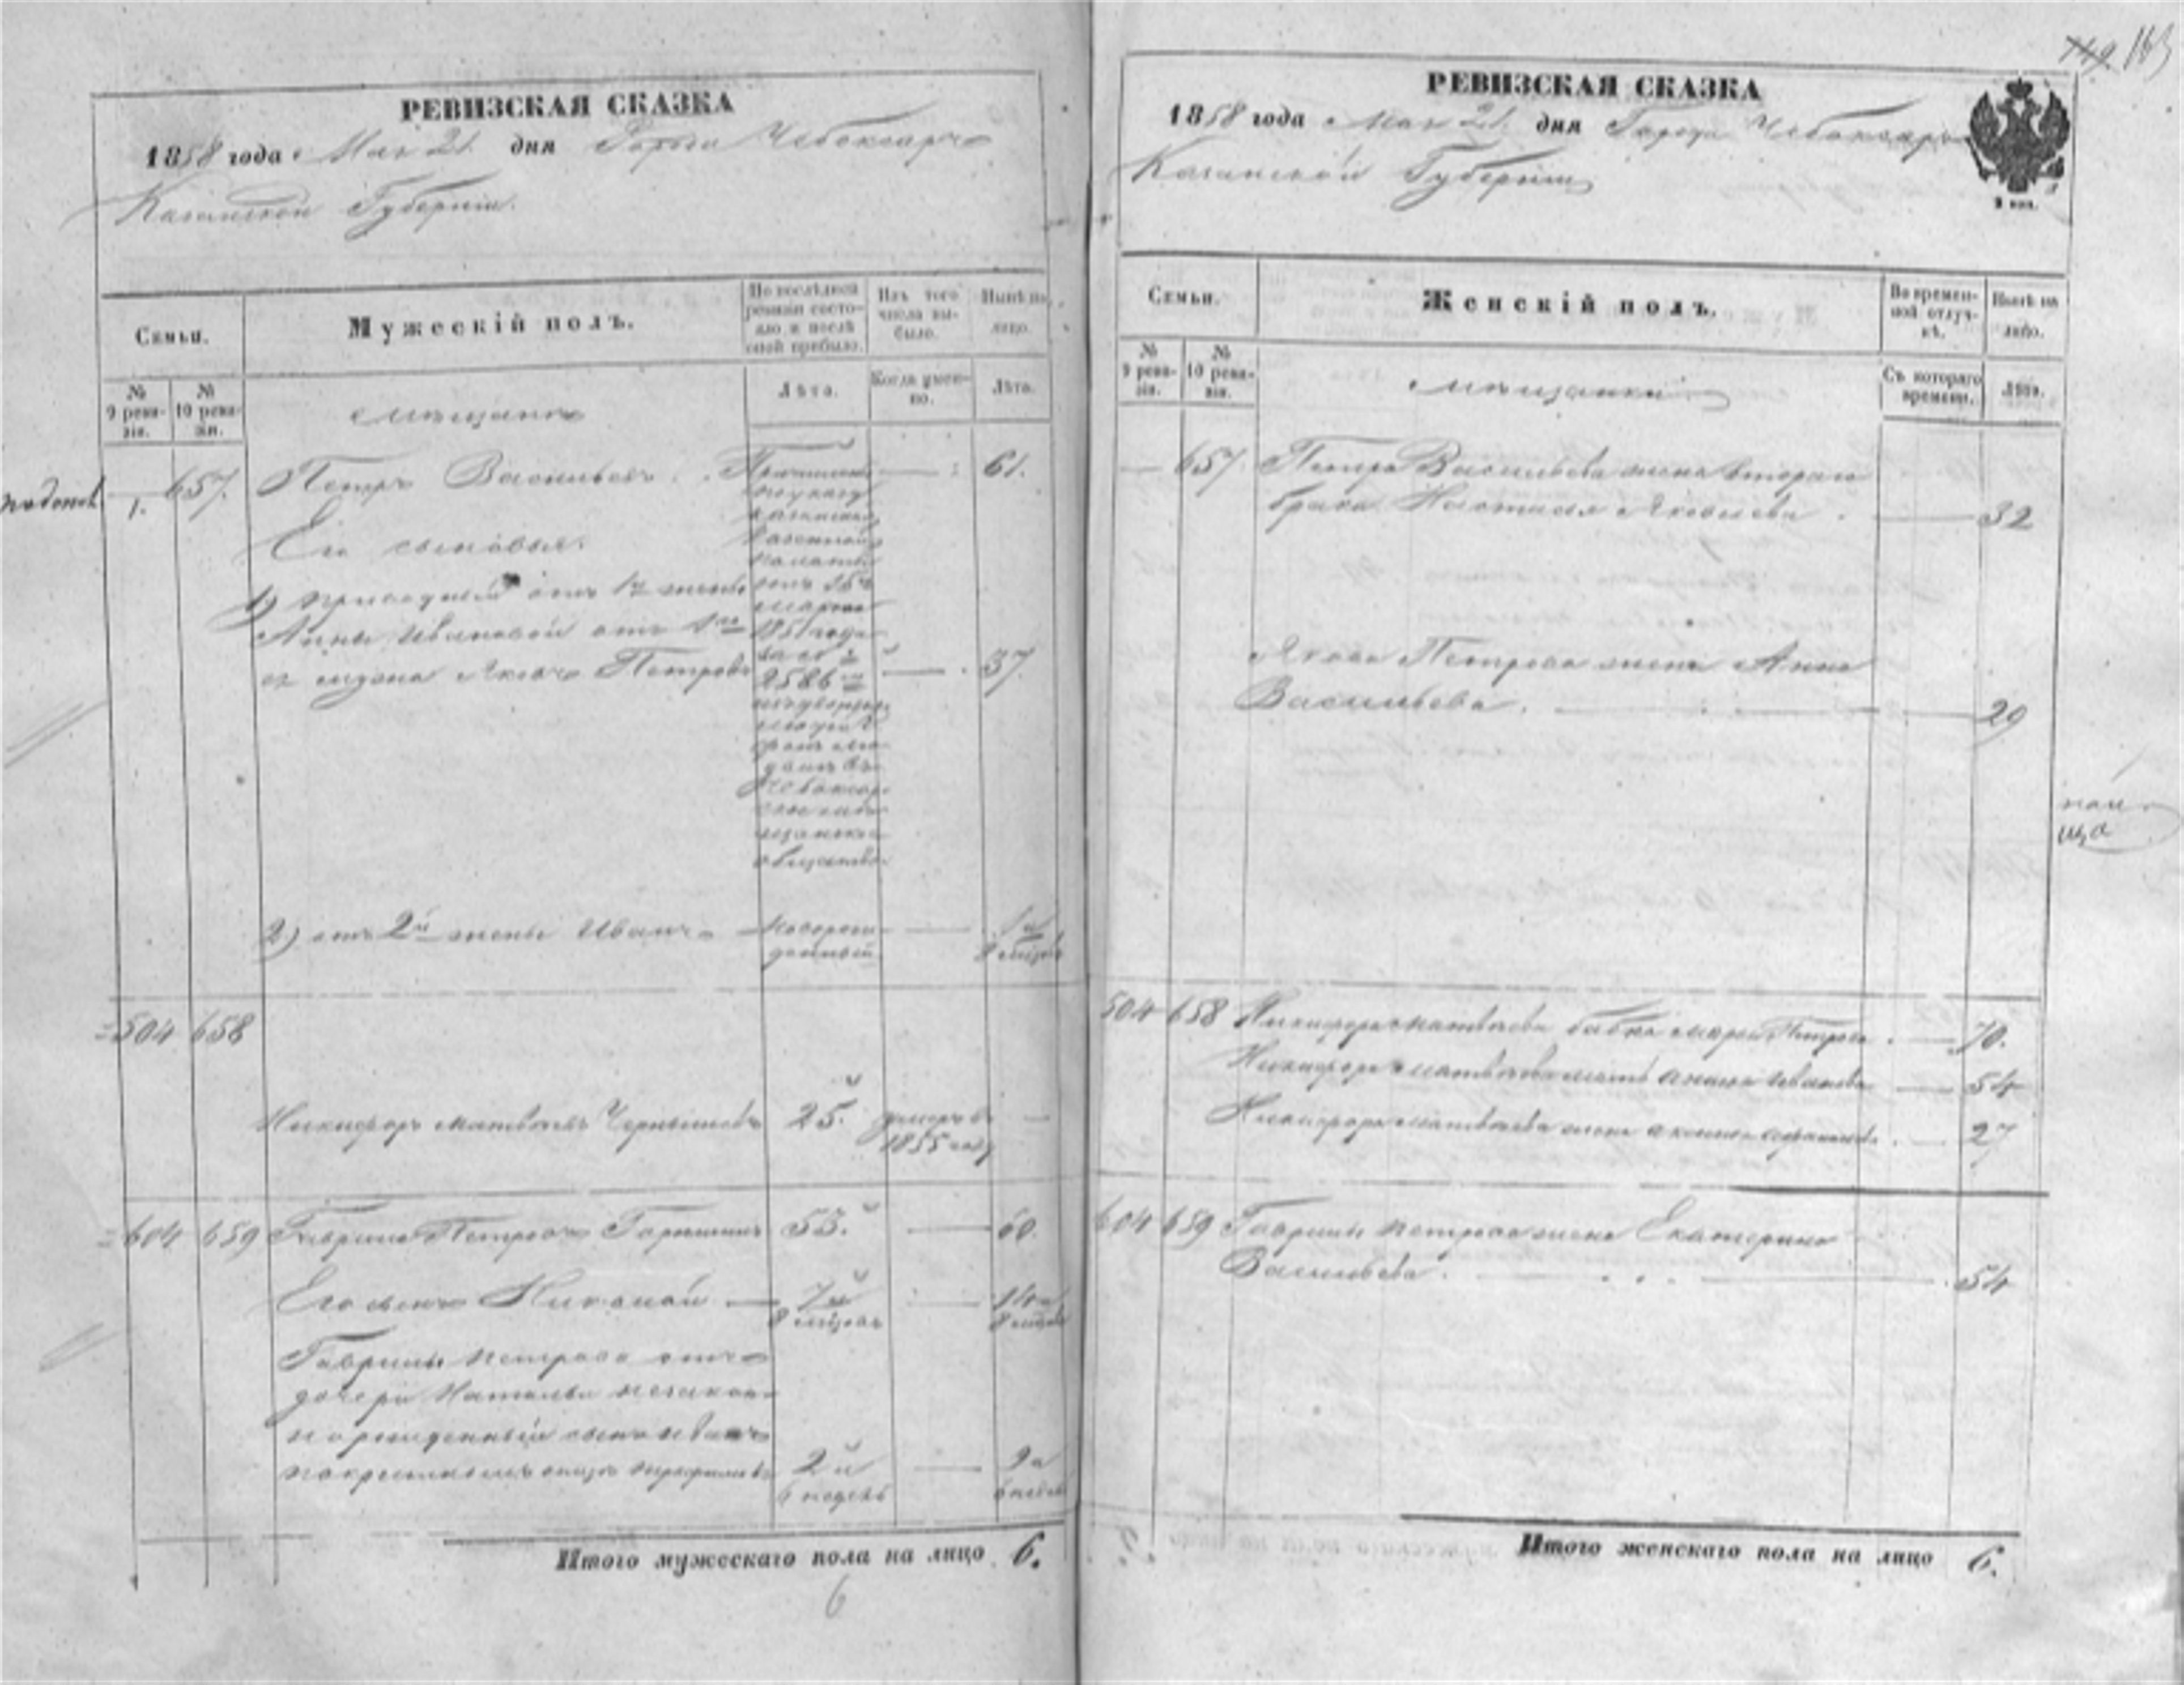 149 163
РЕВИЗСКАЯ СКАЗКА
1858 года Мая 21 дня Города Чебоксаръ
Казанской Губерніи.
Семьи.
Мужескій полъ.
По послѣдней ревизіи состояло и послѣ оной прибыло.
Изъ того числа выбыло.
Нынѣ на лицо.
№ 9 ревизіи.
№ 10 ревизіи.
мѣщане
Лѣта.
Когда именно.
Лѣта.
1. 657. Петръ Васильевъ 61.
Его сыновья:
1) отъ 1й жены
Анны Ивановой отъ 1го
ея мужа Яковъ Петровъ 37.
Причислены
по указу
Казанской
Казенной
палаты
отъ 26го
марта
1851 года
за №
2586м
людей
Чебоксарское мѣщанское
общество
2) отъ 2й жены Иванъ новорожденный 1 и
8 мѣсяц
504 658
Никифоръ Матвѣевъ Чернышевъ 25. умеръ въ
1855 году
604 659 Гаврила Петровъ 53. 60.
Его сынъ Николай 7 и
8 мѣсяцъ 14 и
8 мѣсяц
Гаврилы Петрова отъ
дочери Натальи незаконнорожденный сынъ Иванъ
по крестному отцу 2 и
6 недѣль 9 и
6 недѣль
Итого мужескаго пола на лицо 6.
6
РЕВИЗСКАЯ СКАЗКА
1858 года Мая 21 дня Города Чебоксаръ
Казанской Губерніи
Семьи.
Женскій полъ.
Во временной отлучкѣ.
Нынѣ на лицо.
№ 9 ревизіи.
№ 10 ревизіи.
мѣщанки
Съ котораго времени.
Лѣта.
657. Петра Васильева жена втораго
брака Настасья Яковлева 32
Якова Петрова жена Анна
Васильева. 29
504 658 Никифора Матвѣева бабка Марья Петрова 70.
Никифора Матвѣева мать Иванова 54
Никифора Матвѣева жена 27
604 659 Гаврилы Петрова жена Екатерина
Васильева. 54
Итого женскаго пола на лицо 6.